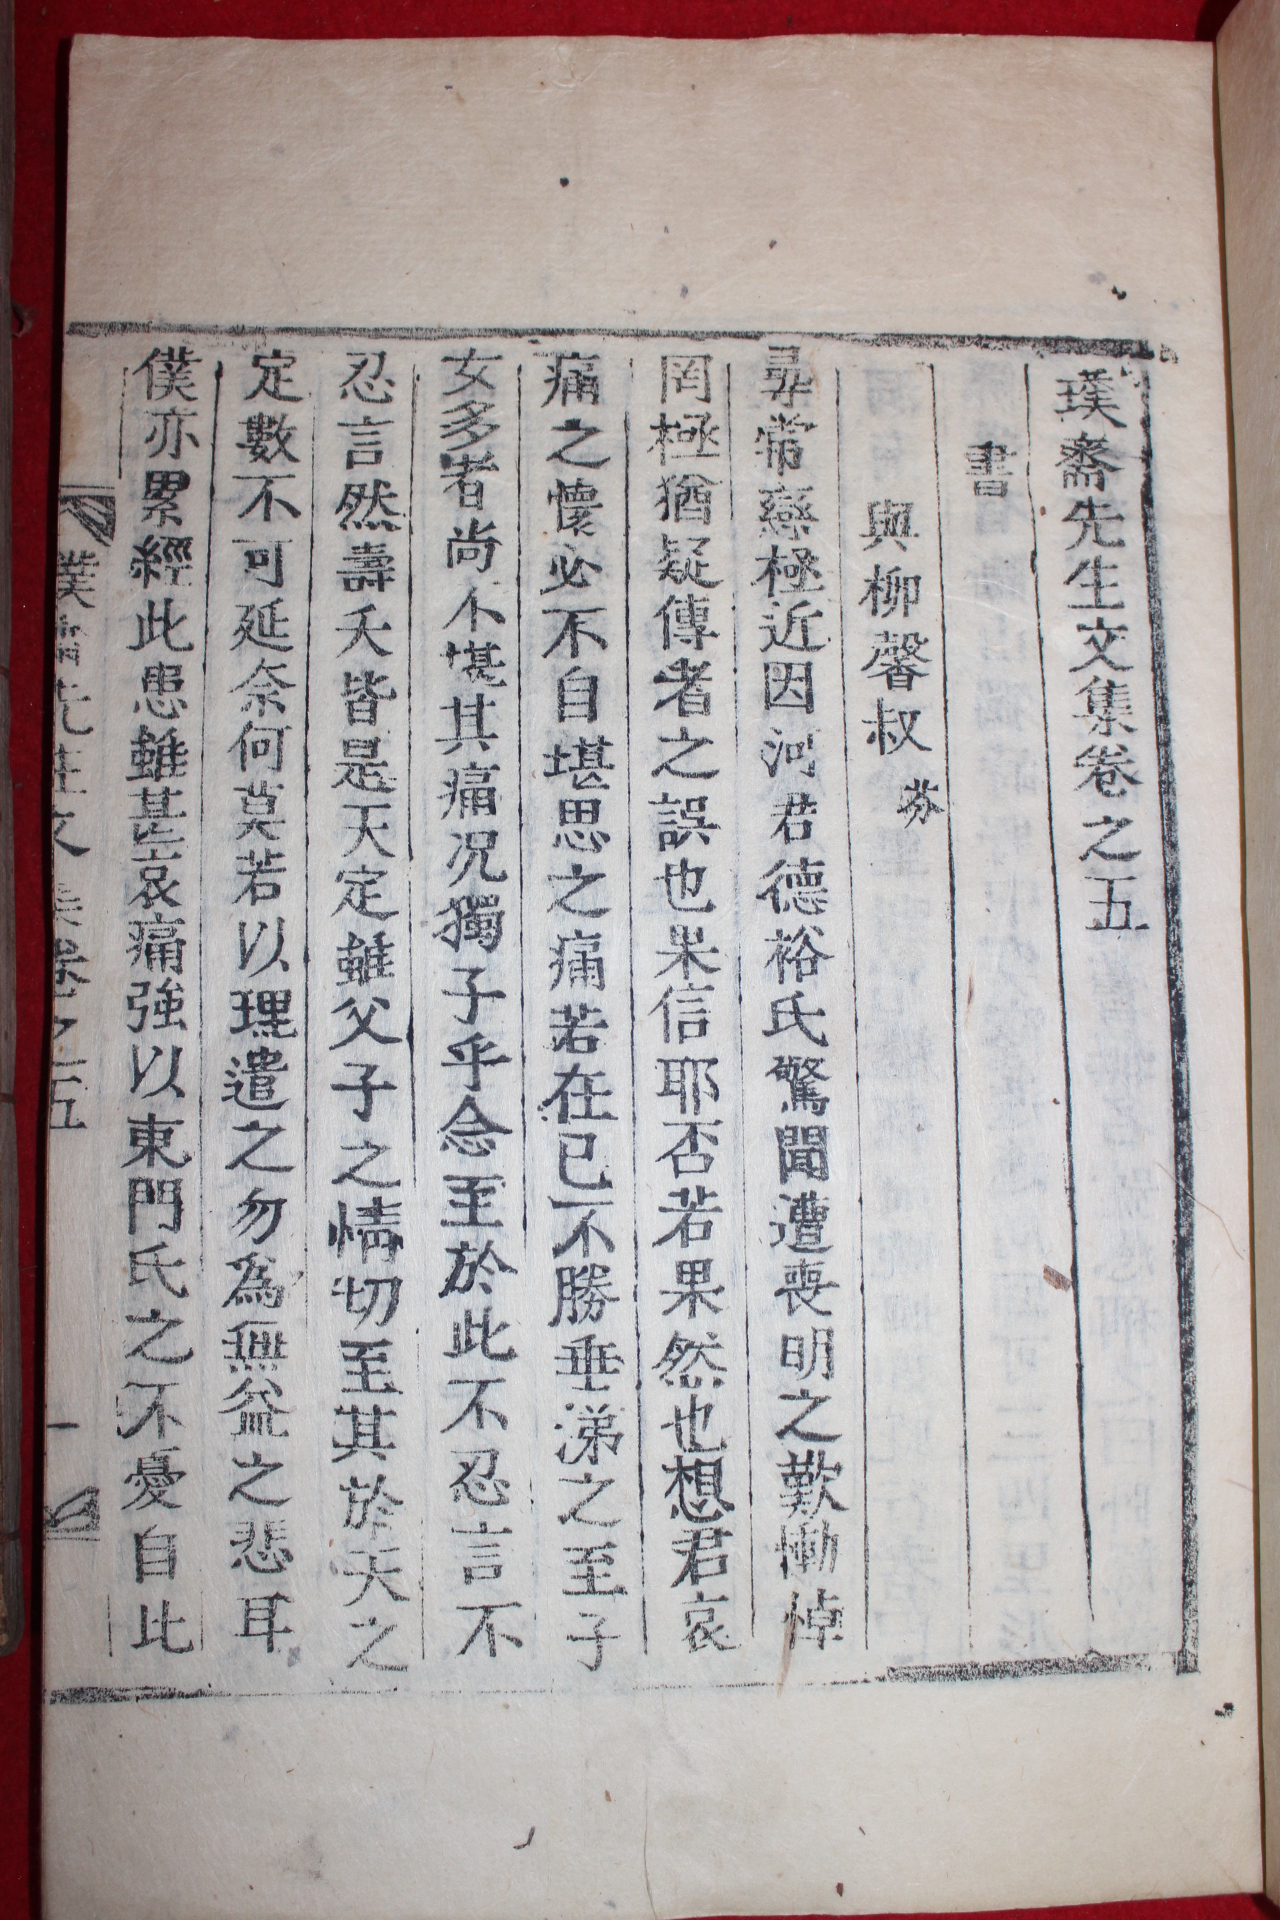 璞齋先生文集卷之五
書
與柳馨叔芬
尋常戀極近因河君德裕氏驚聞遭喪明之歎慟悼
罔極猶疑傳者之誤也果信耶否若果然也想君哀
痛之懷必不自堪思之痛若在已不勝垂涕之至子
女多者尚不堪其痛况獨子乎念至於此不忍言不
忍言然壽夭皆是天定雖父子之情切至其於天之
定數不可延奈何莫若以理遣之勿爲無益之悲耳
僕亦累經此患雖甚哀痛強以東門氏之不憂自此
璞齋先生文集卷之五 一